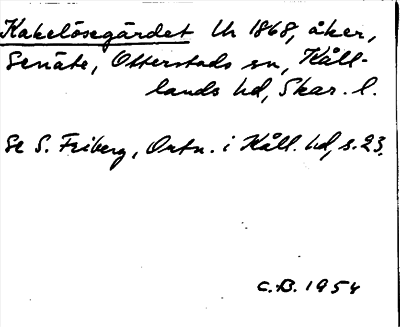 Kakelösegärdet Uh 1868, åker,
Senäte, Otterstads sn, Kåll-
lands hd, Skar. l.
Se S. Friberg, Ortn. i Kåll. hd, s. 23.
C.B. 1954